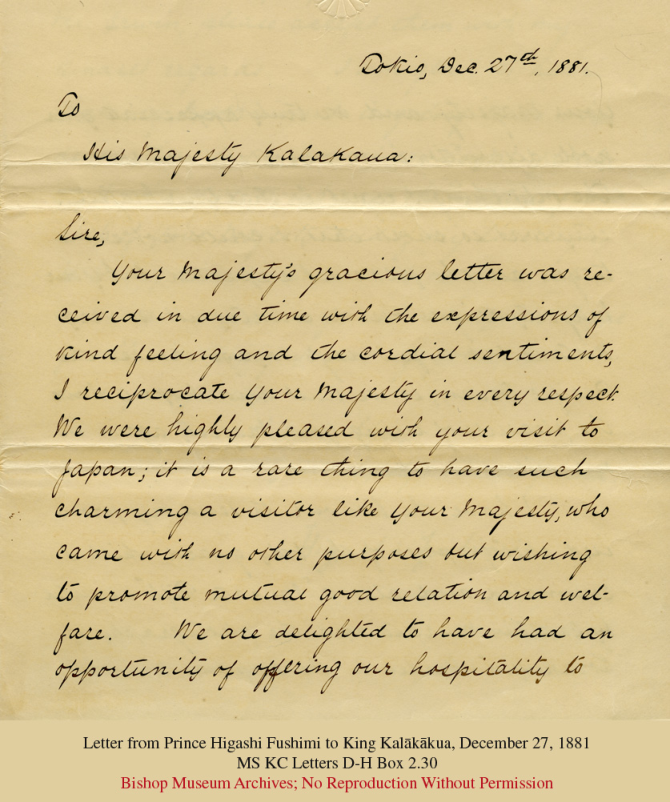 Tokio, Dec. 27th, 1881.
To
His Majesty Kalakaua:
Sire,
Your Majesty's gracious letter was re-
ceived in due time with the expressions of
kind feeling and the cordial sentiments,
I reciprocate Your Majesty in every respect.
We were highly pleased with your visit to
Japan; it is a rare thing to have such
charming a visitor like Your Majesty, who
came with no other purposes but wishing
to promote mutual good relation and wel-
fare. We are delighted to have had an
opportunity of offering our hospitality to
Letter from Prince Higashi Fushimi to King Kalākākua, December 27, 1881
MS KC Letters D-H Box 2.30
Bishop Museum Archives; No Reproduction Without Permission